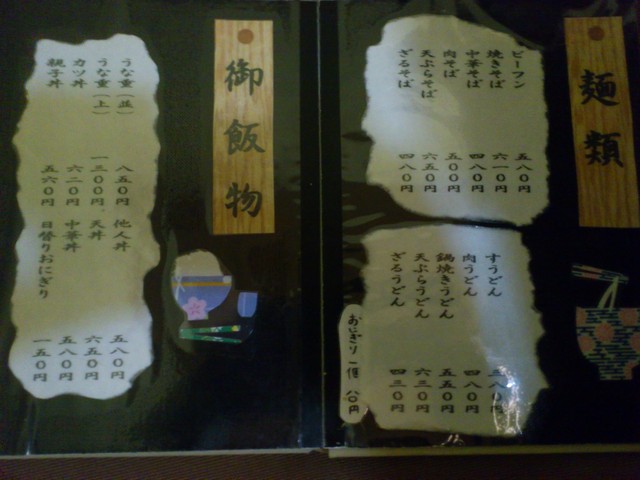 麺類
ビーフン 五八〇円
焼きそば 六一〇円
中華そば 四八〇円
肉そば 五〇〇円
天ぷらそば 六五〇円
ざるそば 四八〇円
すうどん 八〇円
肉うどん 四八〇円
鍋焼きうどん 五五〇円
天ぷらうどん 六三〇円
ざるうどん 四三〇円
おにぎり 一個 八〇円
御飯物
うな重(並) 八五〇円
うな重(上) 一三〇〇円
カツ丼 六二〇円
親子丼 五六〇円
他人丼 五八〇円
天丼 六五〇円
中華丼 五八〇円
日替りおにぎり 一五〇円